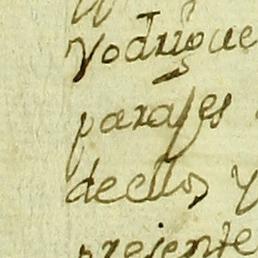 Rodrigue
parajes
dellos y
presente